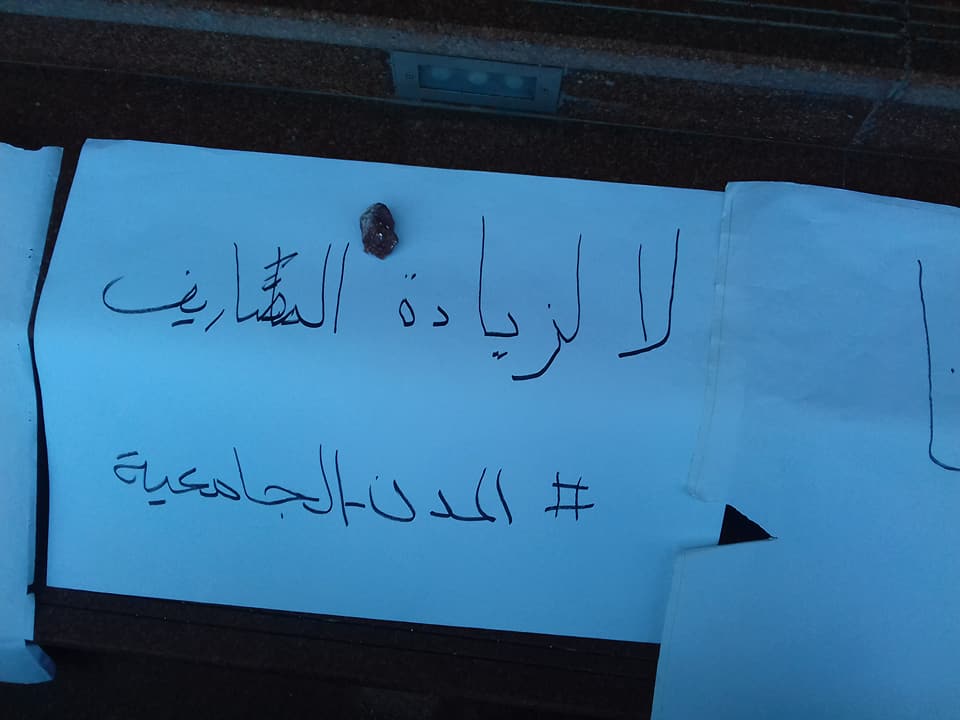 لا لزيادة المصاريف
# المدن_الجامعية